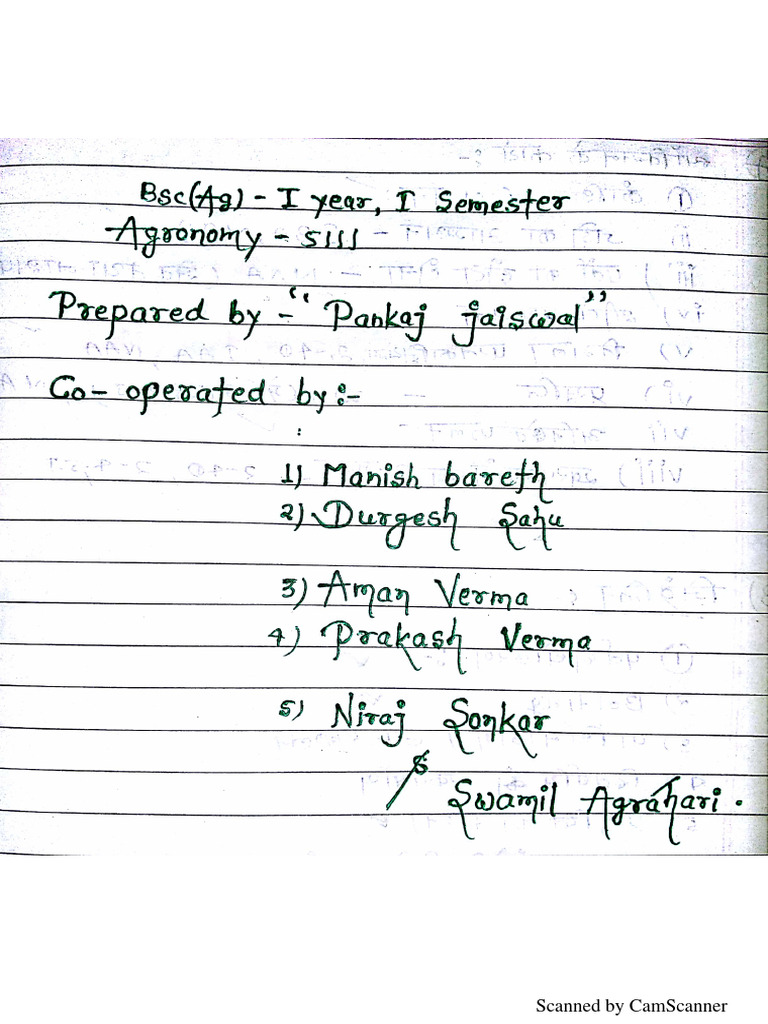 Bsc(Ag) - I year, I Semester
Agronomy - 5111
Prepared by - "Pankaj jaiswal"
Co-operated by :-
1) Manish bareth
2) Durgesh Sahu
3) Aman Verma
4) Prakash Verma
5) Niraj Sonkar
Swamil Agrahari .
Scanned by CamScanner